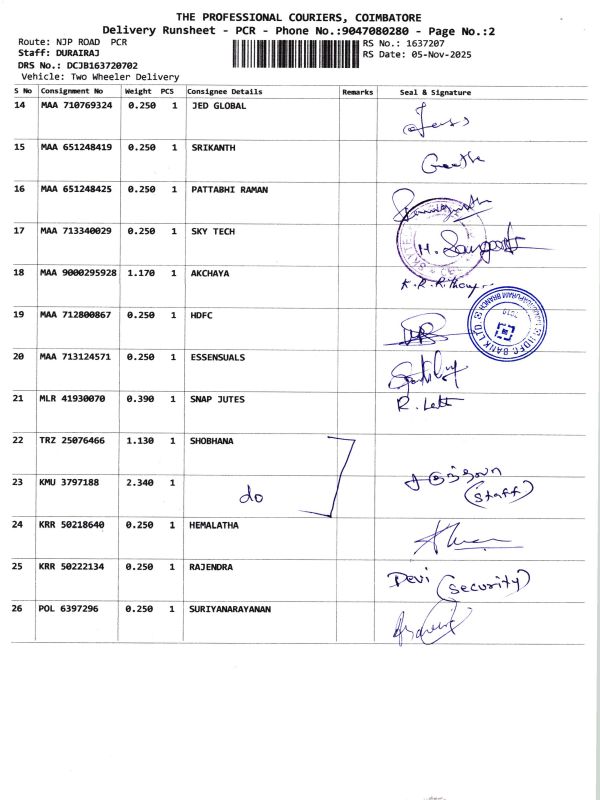 THE PROFESSIONAL COURIERS, COIMBATORE
Delivery Runsheet - PCR - Phone No.:9047080280 - Page No.:2
Route: NJP ROAD PCR
RS No.: 1637207
Staff: DURAIRAJ
RS Date: 05-Nov-2025
DRS No.: DCJB163720702
Vehicle: Two Wheeler Delivery
S No Consignment No Weight PCS Consignee Details Remarks Seal & Signature
14 MAA 710769324 0.250 1 JED GLOBAL
15 MAA 651248419 0.250 1 SRIKANTH Geetha
16 MAA 651248425 0.250 1 PATTABHI RAMAN
17 MAA 713340029 0.250 1 SKY TECH H.
18 MAA 9000295928 1.170 1 AKCHAYA K.R.R.
19 MAA 712800867 0.250 1 HDFC HDFC BANK LTD.
20 MAA 713124571 0.250 1 ESSENSUALS
21 MLR 41930070 0.390 1 SNAP JUTES R.
22 TRZ 25076466 1.130 1 SHOBHANA
23 KMU 3797188 2.340 1 do (staff)
24 KRR 50218640 0.250 1 HEMALATHA
25 KRR 50222134 0.250 1 RAJENDRA Devi (security)
26 POL 6397296 0.250 1 SURIYANARAYANAN